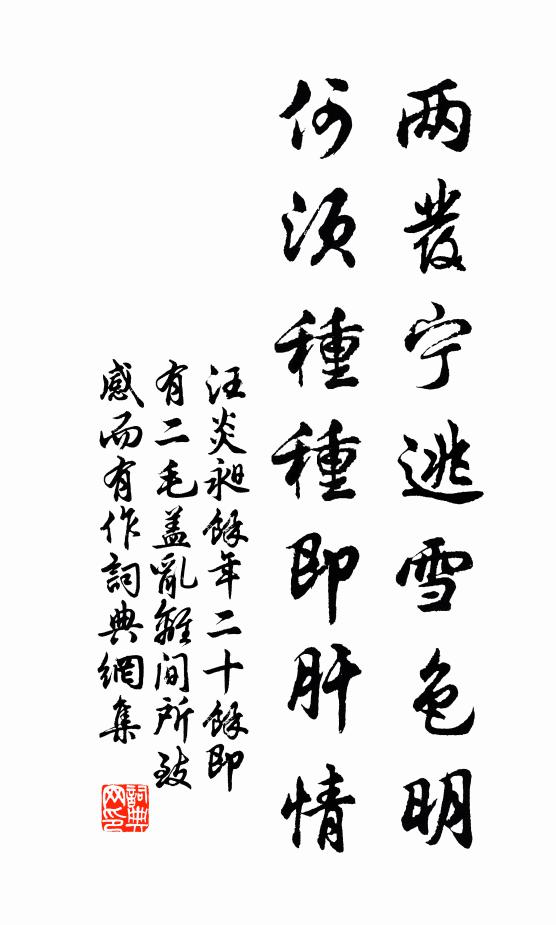 两發宁逃雪色明
何须種種即肝情
汪炎昶餘年二十餘即
有二毛盖亂離间所致
感而有作詞典網集
詞典网印